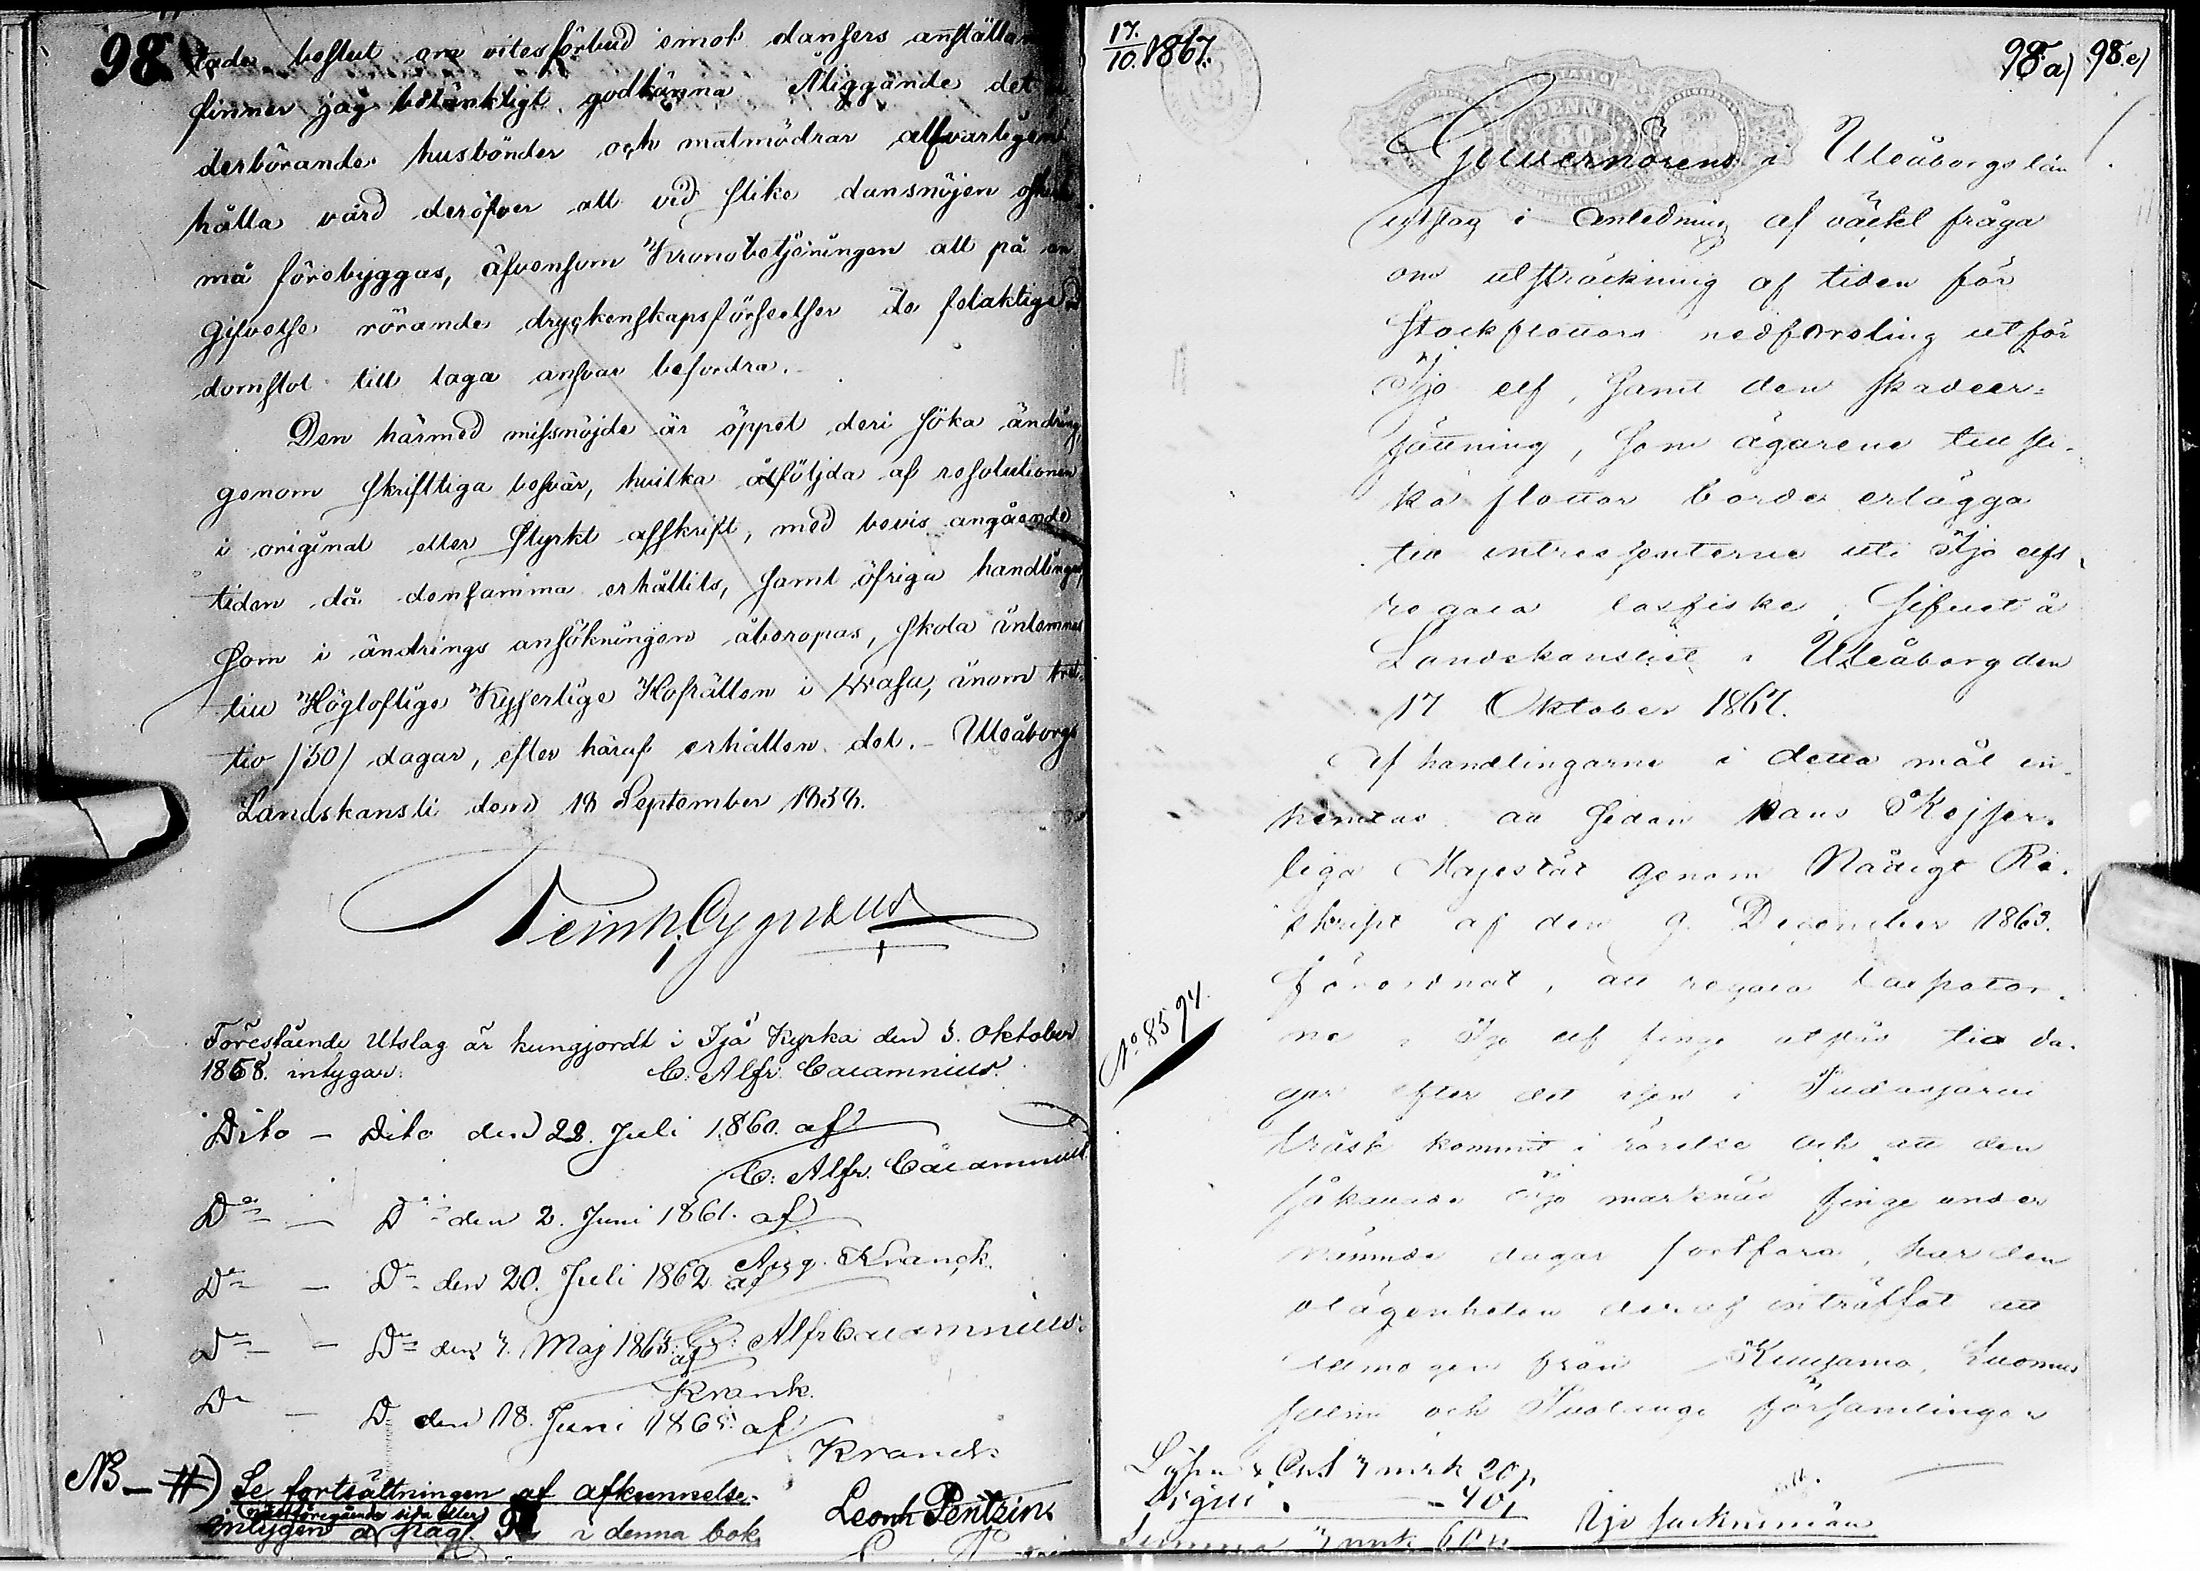 98
tade beslut om vitesförbud emot dansers anställan
finner jag betänkligt godkänna Åliggande det
derbörande husbönder och matmödrar alfvarligen
hålla vård deröfver att vid slike dansnöjen
må förebyggas, äfvensom Kronobetjeningen att på an
gifvelse rörande dryckenskapsförseelser de felaktige
domstol till laga ansvar befordra.
Den härmed missnöjde är öppet deri söka ändring,
genom skriftliga besvär, hvilka åtföljda af resolutionen
i original eller styrkt afskrift, med bevis angående
tiden då densamma erhållits, samt öfriga handlingar,
som i ändrings ansökningen åberopas, skola inlemnas
till Högloflige Kejserlige Hofrätten i Wasa, inom tret-
tio /30/ dagar, efter häraf erhållen del. - Uleåborgs
Landskansli den 18 September 1858.
Heinr. Cygnæus
Förestående Utslag är kungjordt i Ijå Kyrka den 3. Oktober
1858. intygar. C. Alfr. Cajamnius.
Dito - Dito den 22. Juli 1860. af
C. Alfr. Cajamnius
Do - Do den 2. Juni 1861. af
Aug. Kranck.
Do - Do den 20. Juli 1862 af
C. Alfr Cajamnius.
Do - Do den 3. Maj 1863. af
Krank.
Do - Do den 18. Juni 1865. af
Kranck
NB - #) Se fortsättningen af afkunnelse-
näst föregående sida eller
intygen å pag. i denna bok.
Leonh Pentzin
17/10. 1867.
98 a) 98.e)
PENNI
Guvernörens i Uleåborgs län
utslag i anledning af väckt fråga
om utsträckning af tiden för
stockflottors nedforsling utför
Ijo elf, samt den skadeer-
sättning, som ägarene till sli-
ka flottor borde erlägga
till intressenterne uti Ijo elfs
regala laxfiske. Gifvet å
Landskansliet i Uleåborg den
17 Oktober 1867.
Af handlingarne i detta mål in-
hemtas att sedan Hans Kejser-
liga Majestät genom Nådigt Re-
skript af den 9. December 1863.
förordnat, att regala laxpator-
ne i Ijo elf finge utslås tio da-
gar efter det isen i Pudasjärvi
träsk kommit i rörelse och att den
såkallade Ijo marknad finge under
nämnde dagar fortfara, har den
olägenheten deraf inträffat att
allmogen från Kuusamo, Kuomus-
salmi och Puolango församlingar
No. 8594.
Lösen & Chs 3 mrk 20 p.
- 40.
Summa 3 mrk 60 p.